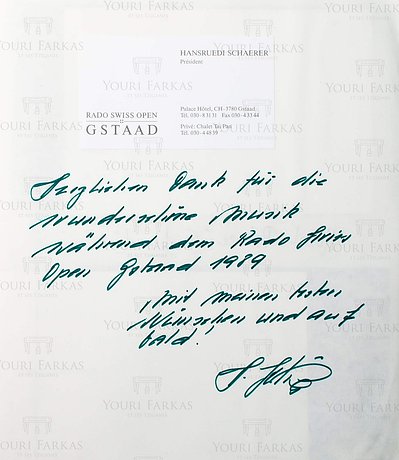 HANSRUEDI SCHAERER
Président
RADO SWISS OPEN
GSTAAD
Palace Hôtel, CH-3780 Gstaad
Tél. 030-8 31 31 Fax 030-4 33 44
Privé: Chalet Tai Pan
Tél. 030-4 48 59
Herzlichen Dank für die
wunderschöne Musik
während dem Rado Swiss
Open Gstaad 1989
, Mit meinen besten
Wünschen und auf
bald!
YOURI FARKAS